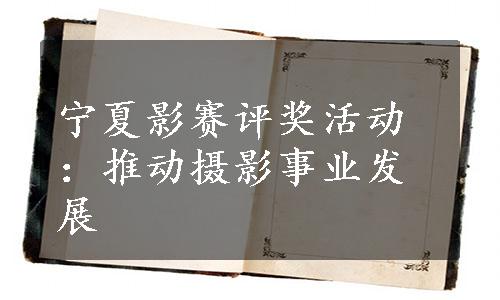 宁夏影赛评奖活动
：推动摄影事业发
展